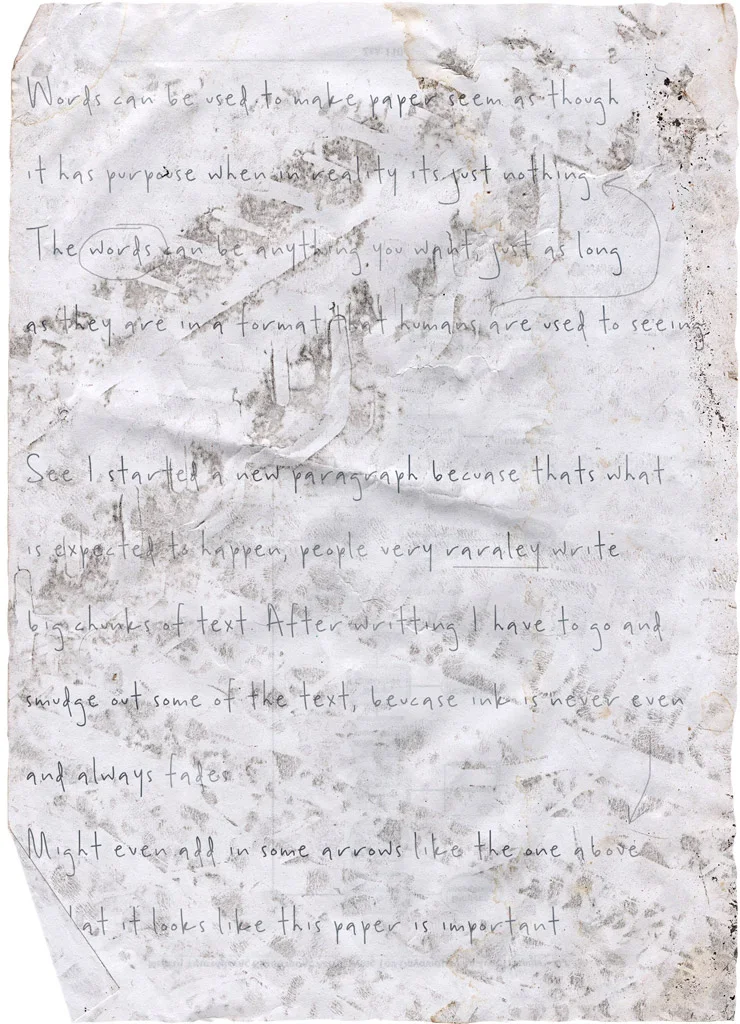 Words can be used to make paper seem as though
it has purpouse when in reality its just nothing
The words can be anything you want, just as long
as they are in a format that humans are used to seeing
See I started a new paragraph becuase thats what
is expected to happen, people very raraley write
big chunks of text. After writting I have to go and
smudge out some of the text, beucase ink is never even
and always fades
Might even add in some arrows like the one above
at it looks like this paper is important.